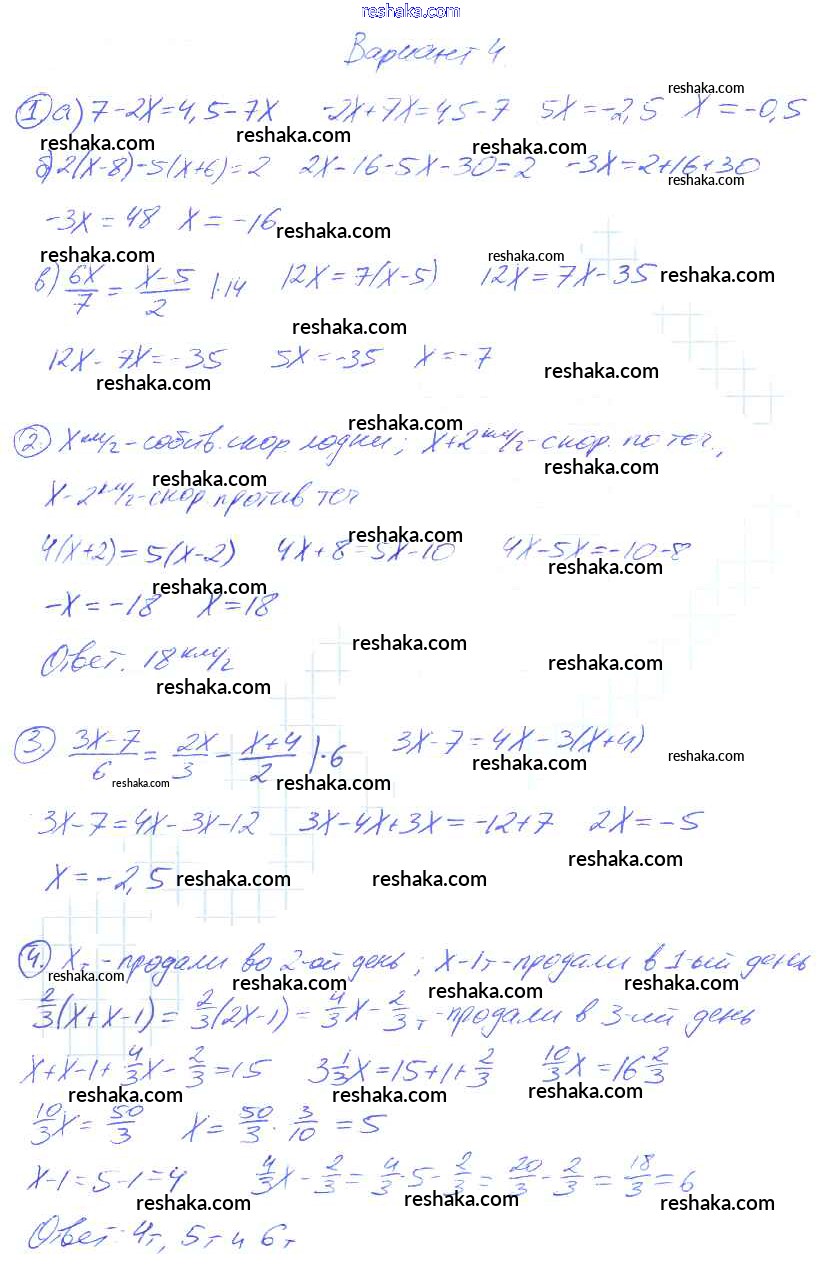 reshaka.com
Вариант 4
reshaka.com
① а) 7-2x=4,5-7x -2x+7x=4,5-7 5x=-2,5 x=-0,5
reshaka.com reshaka.com reshaka.com
б) 2(x-8)-5(x+6)=2 2x-16-5x-30=2 -3x=2+16+30
reshaka.com
-3x=48 x=-16 reshaka.com
reshaka.com reshaka.com
в) 6x/7 = x-5/2 |·14 12x=7(x-5) 12x=7x-35 reshaka.com
reshaka.com
12x-7x=-35 5x=-35 x=-7
reshaka.com reshaka.com
reshaka.com
② x км/г-собств. скор. лодки; x+2 км/г-скор. по теч.,
reshaka.com reshaka.com
x-2 км/г-скор. против теч
reshaka.com
4(x+2)=5(x-2) 4x+8=5x-10 4x-5x=-10-8
reshaka.com reshaka.com
-x=-18 x=18
reshaka.com
Ответ. 18 км/г reshaka.com
reshaka.com
③. 3x-7/6 = 2x/3 - x+4/2 |·6 3x-7=4x-3(x+4)
reshaka.com reshaka.com reshaka.com reshaka.com
3x-7=4x-3x-12 3x-4x+3x=-12+7 2x=-5
reshaka.com
x=-2,5 reshaka.com reshaka.com
④. x т-продали во 2-ой день; x-1т-продали в 1-ый день
reshaka.com reshaka.com reshaka.com reshaka.com
2/3(x+x-1)=2/3(2x-1)=4/3x-2/3 т-продали в 3-ий день
reshaka.com
x+x-1+4/3x-2/3=15 3 1/3x=15+1+2/3 10/3x=16 2/3
reshaka.com reshaka.com reshaka.com
10/3x=50/3 x=50/3·3/10=5
x-1=5-1=4 4/3x-2/3=4/3·5-2/3=20/3-2/3=18/3=6
reshaka.com reshaka.com reshaka.com
Ответ: 4т, 5т и 6т